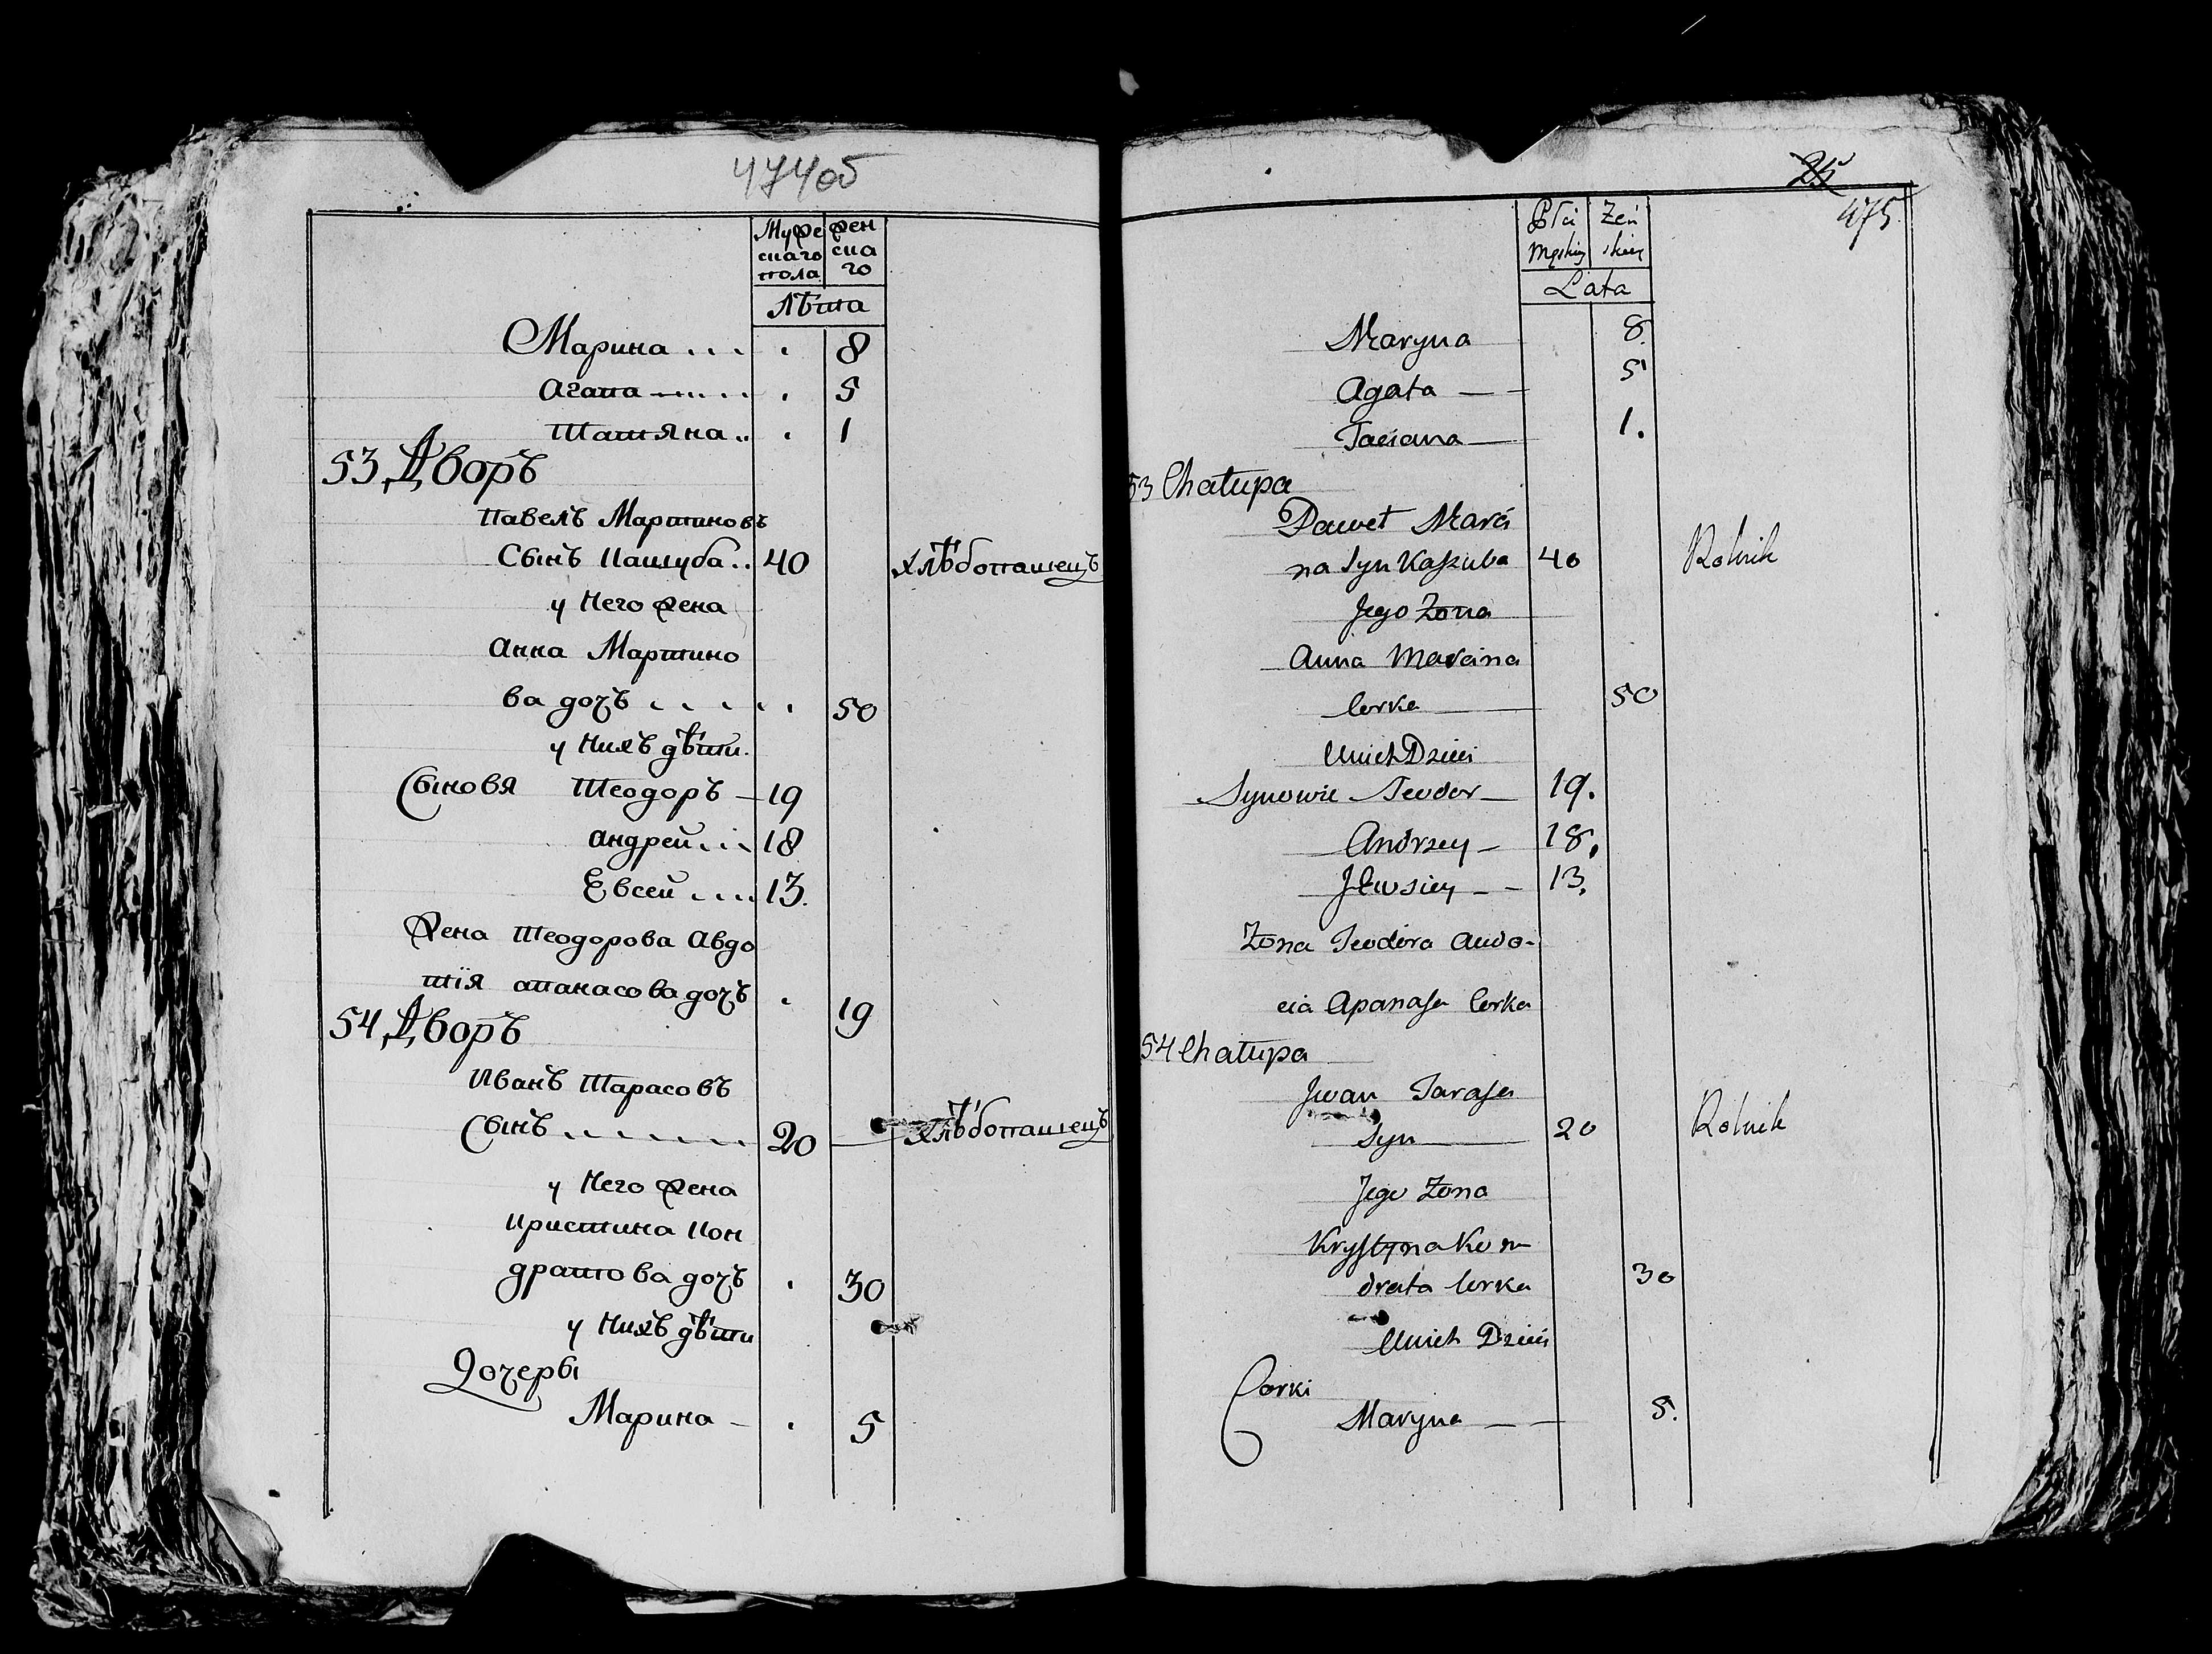 474об
Мужескаго пола
Женскаго
Лѣта
Марина . . . . 8
Агата . . . . 5
Татяна .. . 1
53 Дворъ
Павелъ Мартиновъ
Сынъ Кашуба .. 40 хлѣбопашецъ
у Него жена
Анна Мартино
ва дочъ . . . . . 50
у Нихъ дѣти.
Сыновя Теодоръ — 19
Андрей . . . 18
Евсей . . . . 13.
Жена Теодорова Авдо
тїя апанасова дочъ . 19
54 Дворъ
Иванъ Тарасовъ
Сынъ . . . . . . 20 — хлѣбопашецъ
у Него жена
Кристина Кон
дратова дочъ . 30
у Нихъ дѣти
Дочеры
Марина — . 5
475.
Płci Męskiey
Żeń skiey
Lata
Maryna 8.
Agata — — 5
Taciana — 1.
53 Chałupa
Paweł Marci
na Syn Kaszuba 40 Rolnik
Jego Żona
Anna Marcina
Corka — 50
U nich Dzieci
Synowie Teodor — 19.
Andrzey — 18.
Jewsiey — — 13.
Żona Teodora Awdo-
cia Apanasa Corka
54 Chałupa
Jwan Tarasa
Syn — 20 Rolnik
Jego Żona
Krystyna Kon
drata Corka 30
U nich Dzieci
Corki
Maryna — — 5.